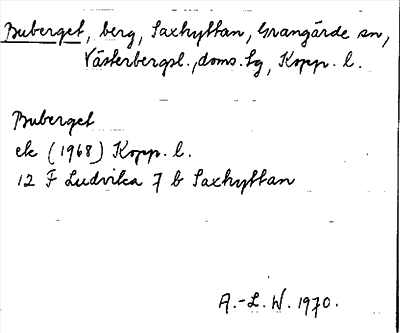 Buberget, berg, Saxhyttan, Grangärde sn,
Västerbergsl., doms. tg, Kopp. l.
Buberget
ek (1968) Kopp. l.
12 F Ludvika 7 b Saxhyttan
A.-L. W. 1970.